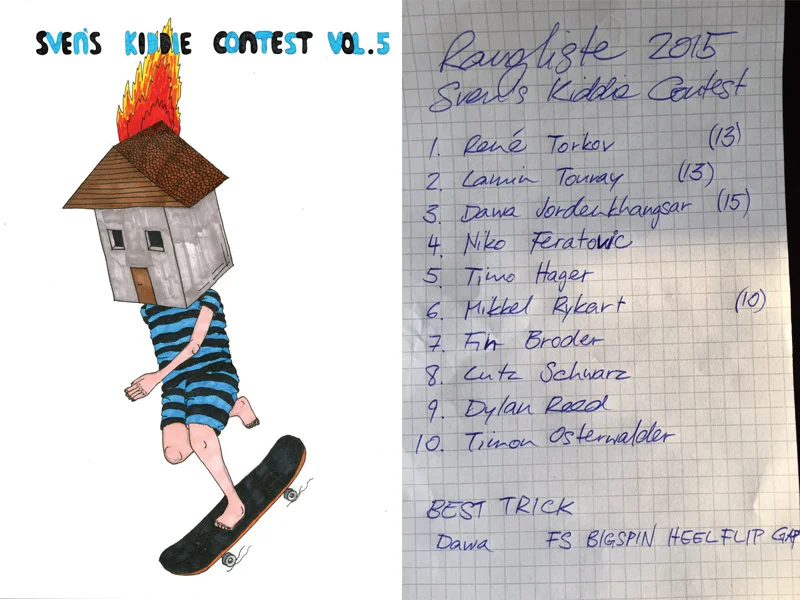 SVEN'S KIDDIE CONTEST VOL.5
Rangliste 2015
Sven's Kiddie Contest
1. René Torkov (13)
2. Lamin Touray (13)
3. Dawa Jordenkhangsar (15)
4. Niko Feratovic
5. Timo Hager
6. Mikkel Rykart (10)
7. Fin Broder
8. Lutz Schwarz
9. Dylan Reed
10. Timon Osterwalder
BEST TRICK
Dawa FS BIGSPIN HEELFLIP GAP